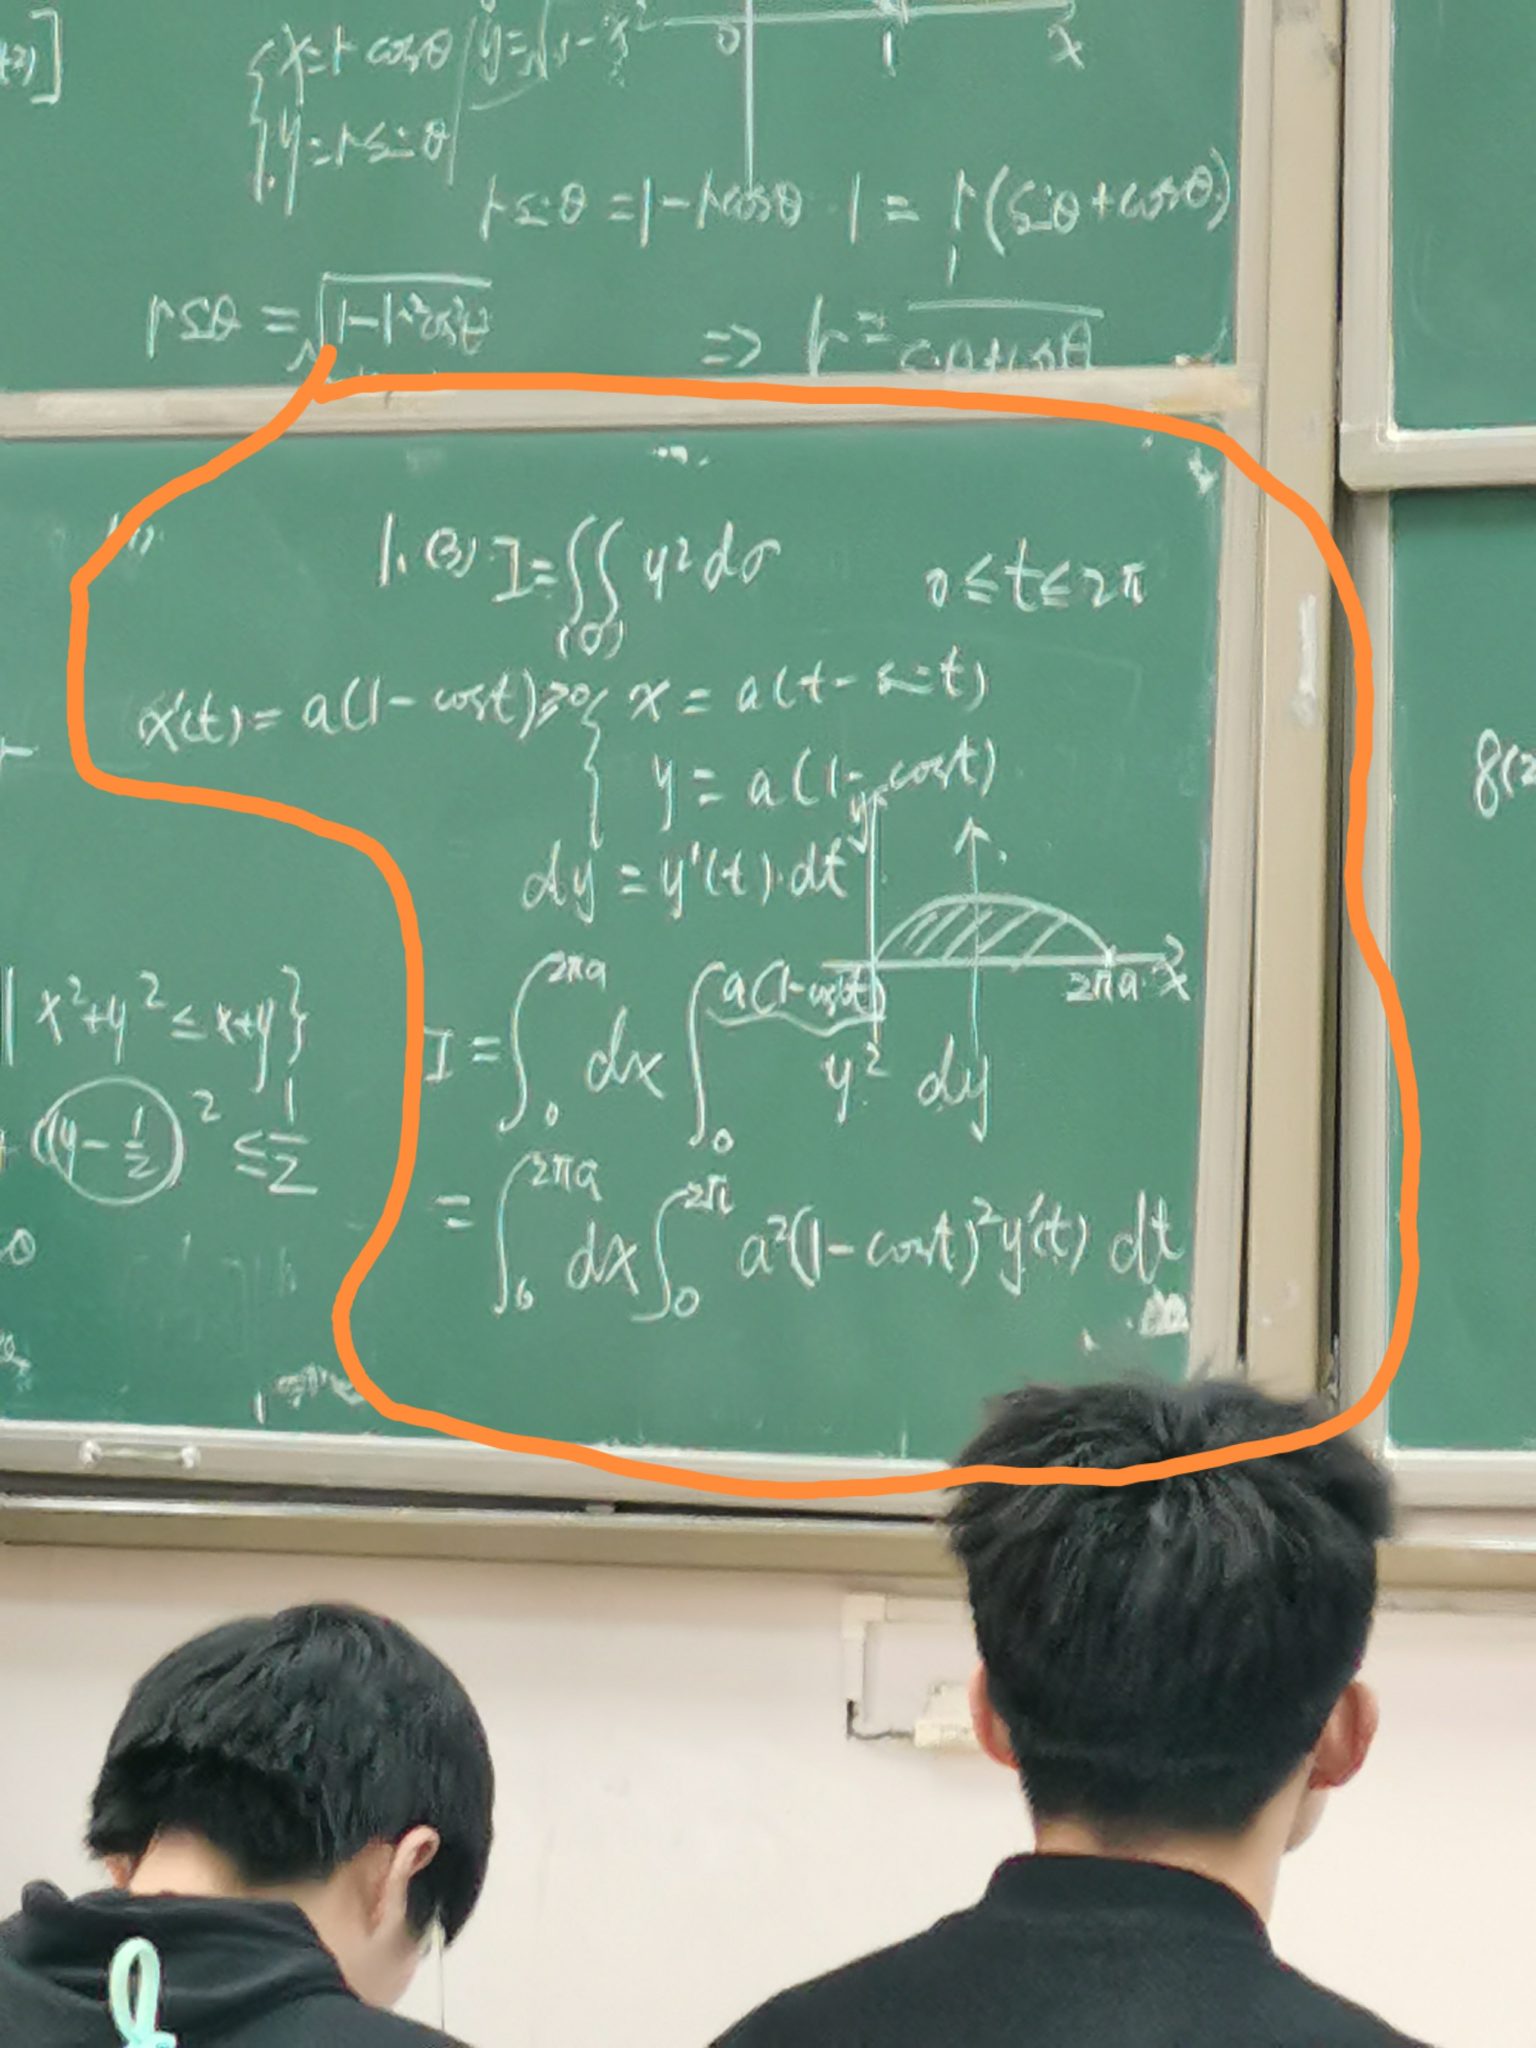 x=r cosθ
y=√1-x²
0 1 x
y=r sinθ
r sinθ = 1-r cosθ 1 = r(sinθ+cosθ)
r sinθ = √1-r²cos²θ
⇒ r = 1/(sinθ+cosθ)
1. (3). I=∬(σ) y²dσ 0≤t≤2π
x'(t) = a(1-cost)≥0 { x = a(t-sint)
y = a(1-cost)
y
dy = y'(t)·dt
2πa x
I = ∫₀^{2πa} dx ∫₀^{a(1-cost)} y² dy
= ∫₀^{2πa} dx ∫₀^{2π} a²(1-cost)²y'(t) dt
| x²+y² ≤ x+y}
(y-1/2)² ≤ 1/2